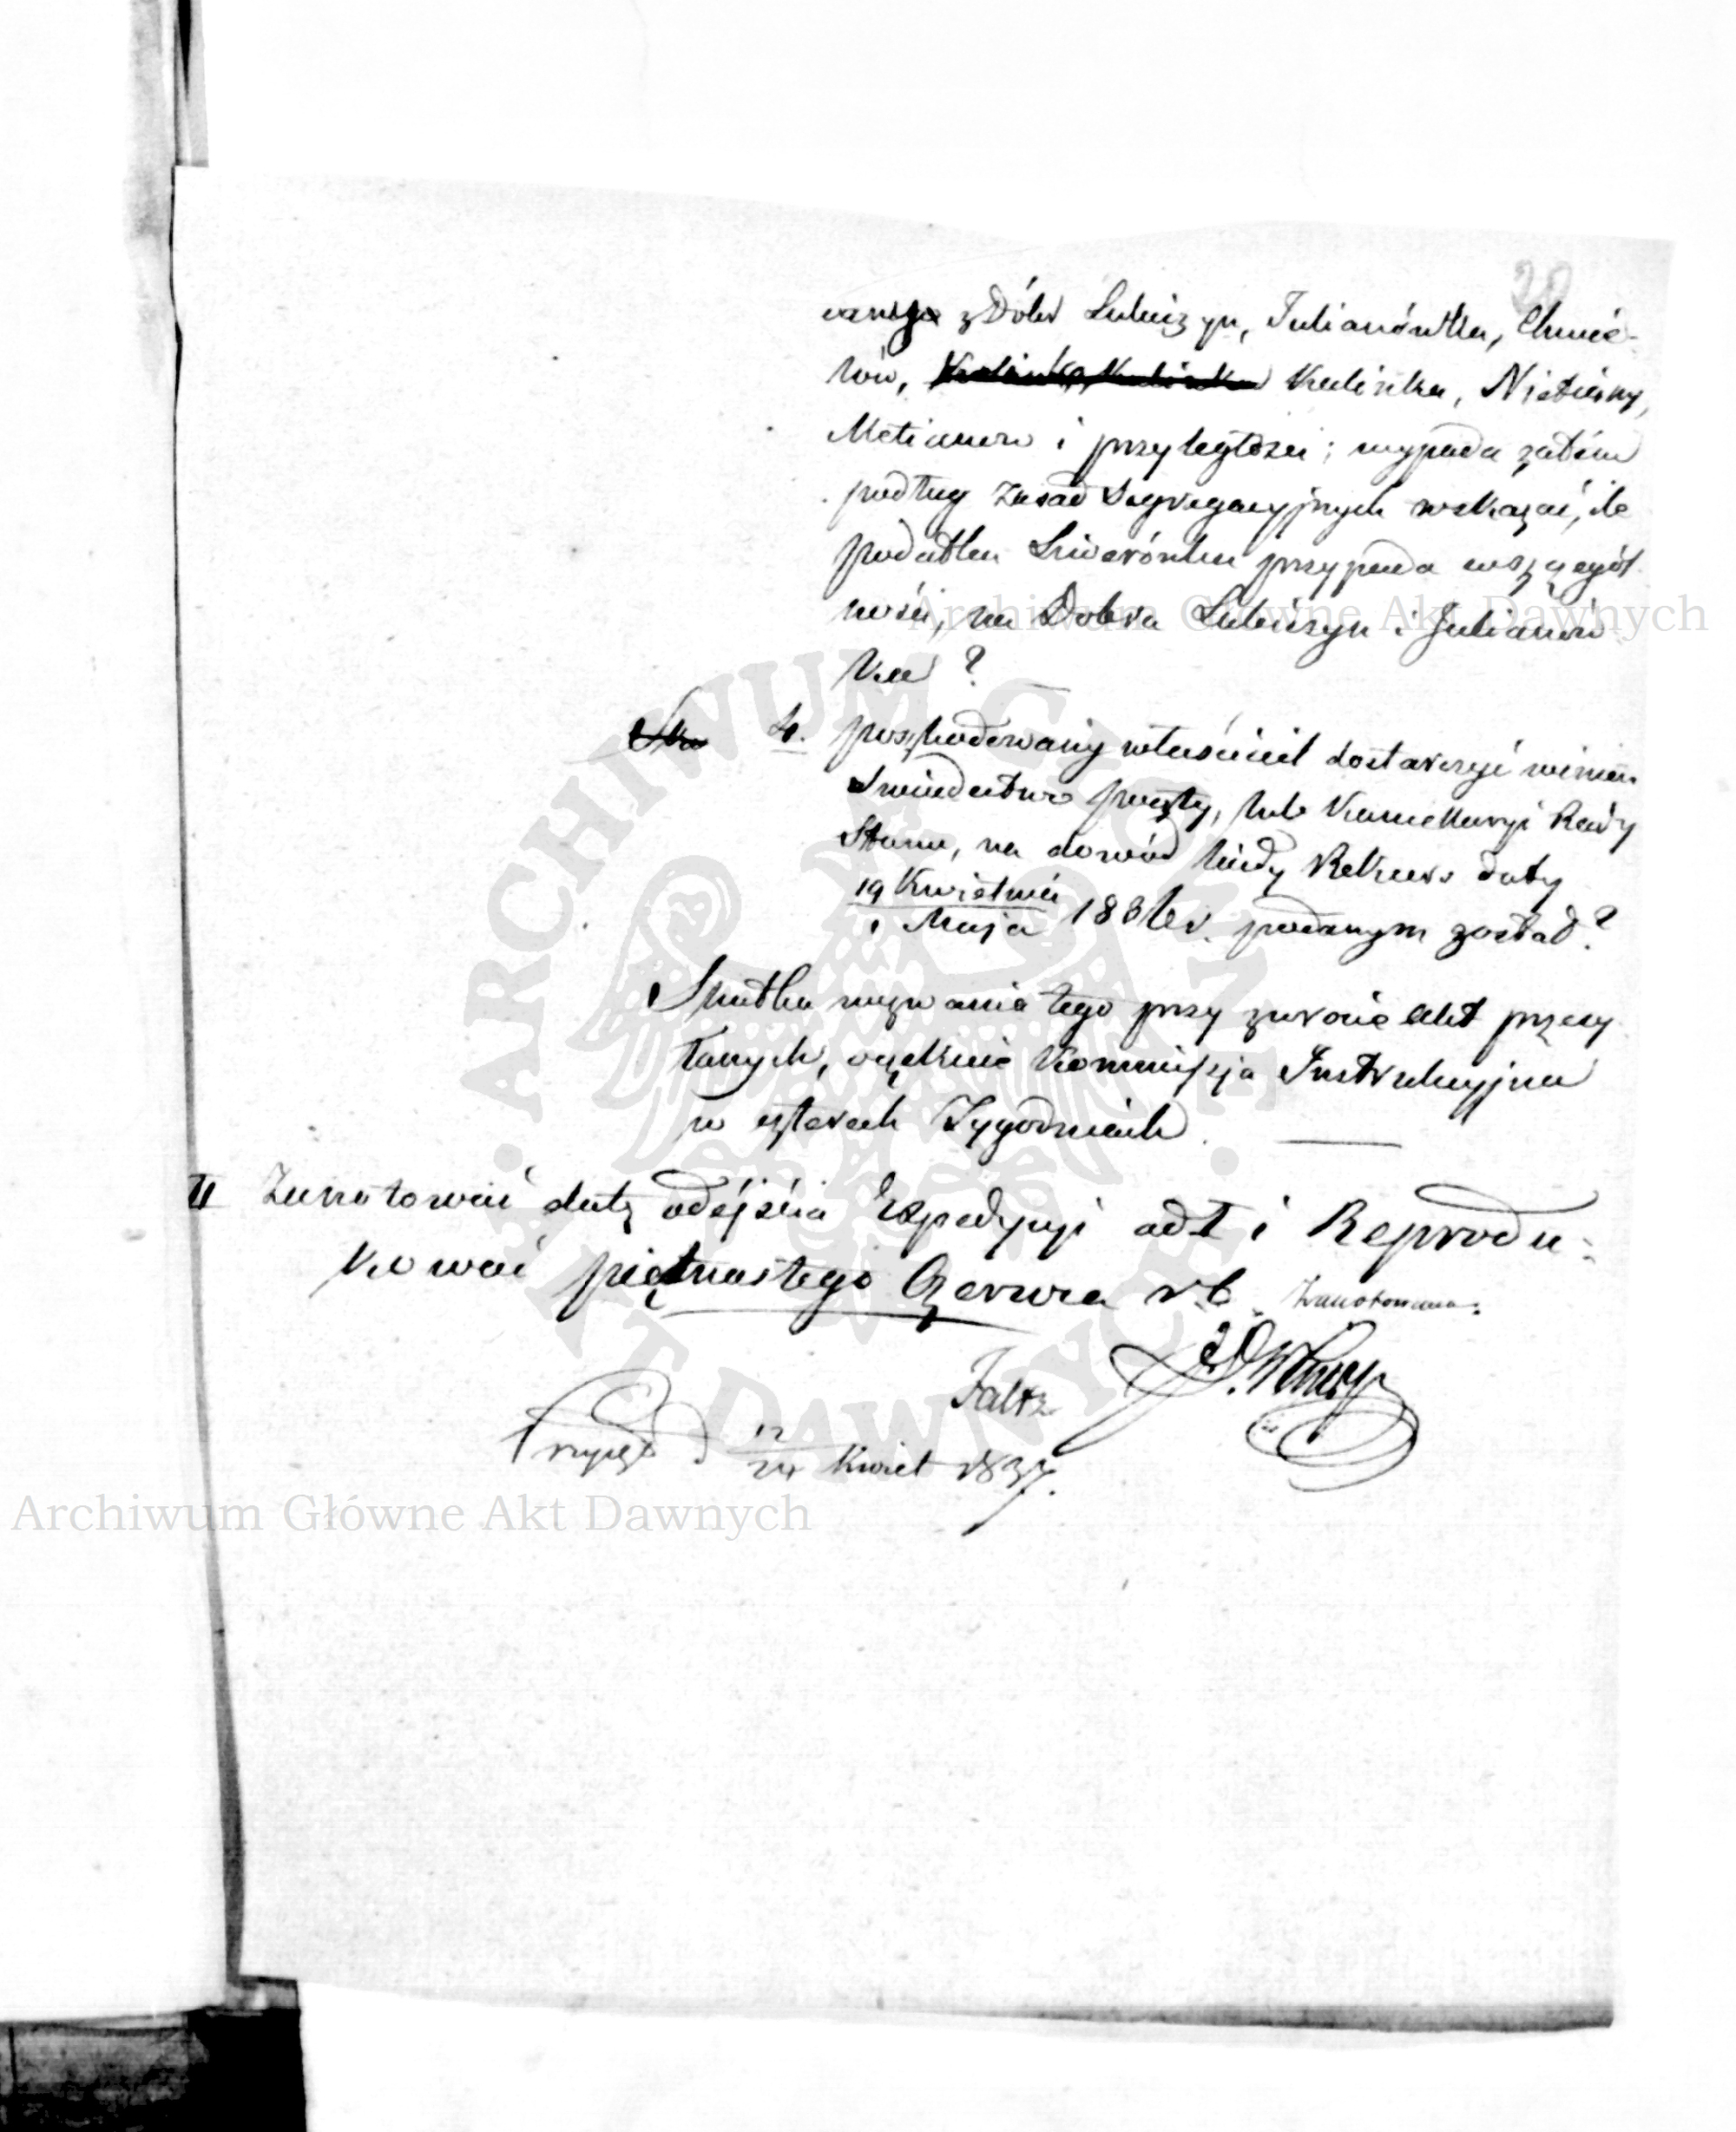 20
z Dóbr Lubiczyn, Julianówka, Chmie-
lów, Kalinka,
i przyległości; wypada zatém
podług zasad Segregacyjnych wskazać, ile
podatku Liwerónku przypada wszczegól-
ności, na Dobra Lubiczyn i Julianów
ka ?
4. poszkodowany właściciel dostarczyć winien
Swiadectwo poczty, lub Kancellaryi Rady
Stanu, na dowód kiedy Rekurs daty
19 Kwietnia
1 Maja 183 r. podanym został?
Skutku wezwania tego przy zwrocie Akt przesy
łanych, oczekuie Kommissja Instrukcyjna
w czterech Tygodniach.
II Zanotować datę odejścia Expedycyi ad I i Reprodu-
kować piętnastego Czerwca r b. Zanotowano.
Faltz
12
24 Kwiet 1837.
Archiwum Główne Akt Dawnych
Archiwum Główne Akt Dawnych
ARCHIWUM GŁÓWNE AKT DAWNYCH